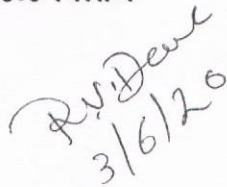 R.V. Dave
3/6/20